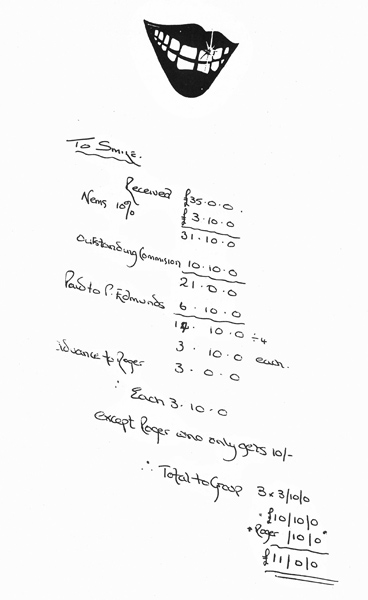 To Smile.
Received £35.0.0.
Nems 10% £ 3.10.0
31.10.0
Outstanding Commission 10.10.0
21.0.0
Paid to P. Edmunds 6.10.0
14. 10.0 ÷4
3. 10.0 each.
Advance to Roger 3.0.0
∴ Each 3.10.0
except Roger who only gets 10/-
∴ Total to Group 3 x 3/10/0
= £10/10/0
+ Roger /10/0
£11/0/0